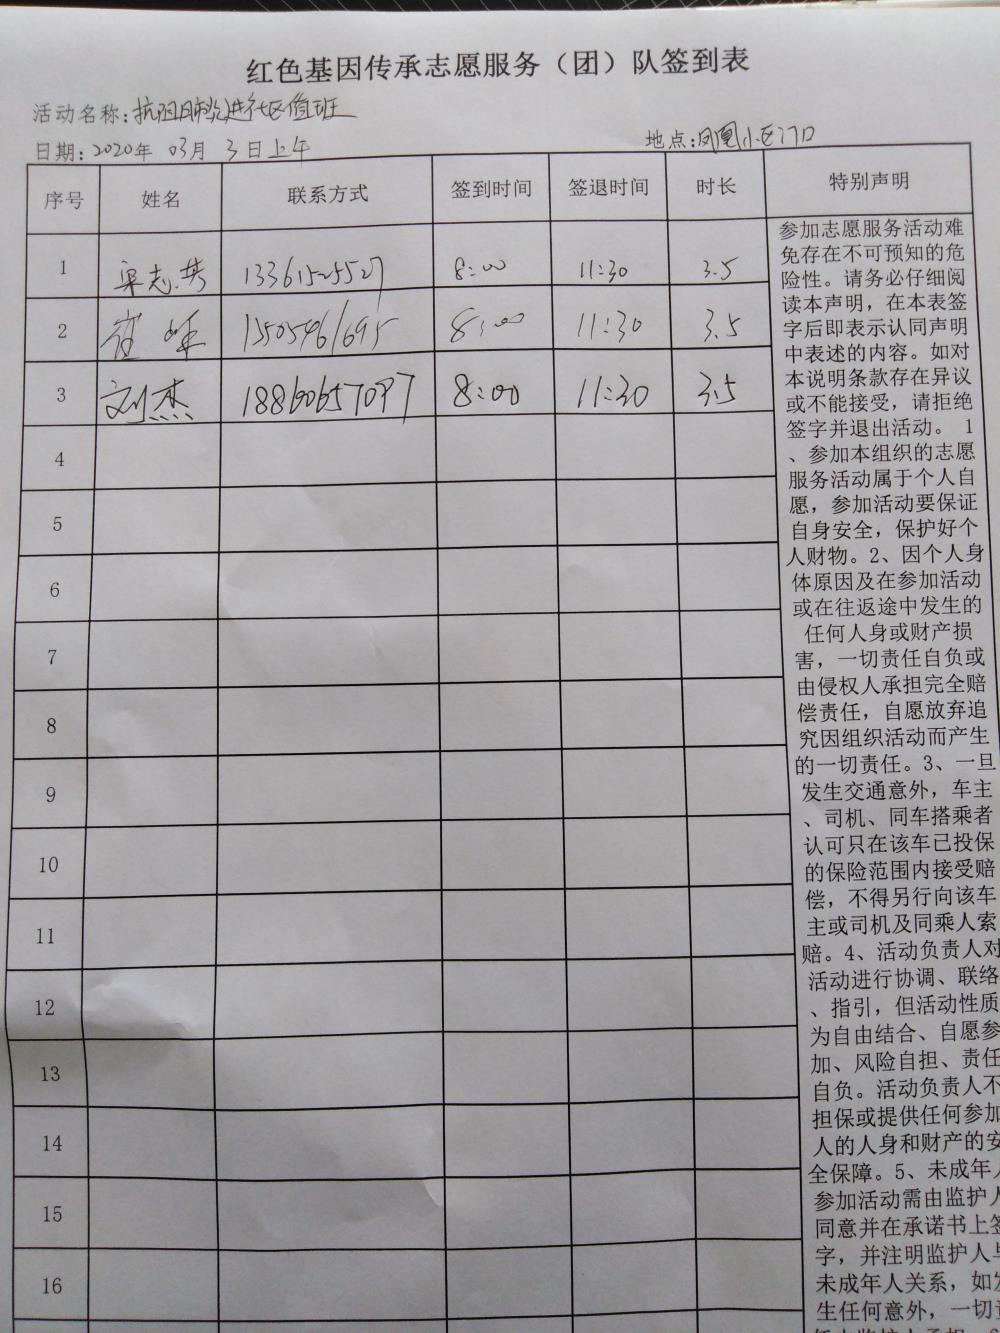 红色基因传承志愿服务（团）队签到表
活动名称:抗阻肺炎进社区值班
日期:2020年 03月 3日上午
地点:凤凰小区门口
序号 姓名 联系方式 签到时间 签退时间 时长 特别声明
1 梁志芸 13361525527 8:00 11:30 3.5
2 崔 15054961695 8:00 11:30 3.5
3 刘杰 18860657097 8:00 11:30 3.5
4
5
6
7
8
9
10
11
12
13
14
15
16
参加志愿服务活动难
免存在不可预知的危
险性。请务必仔细阅
读本声明，在本表签
字后即表示认同声明
中表述的内容。如对
本说明条款存在异议
或不能接受，请拒绝
签字并退出活动。 1
、参加本组织的志愿
服务活动属于个人自
愿，参加活动要保证
自身安全，保护好个
人财物。2、因个人身
体原因及在参加活动
或在往返途中发生的
任何人身或财产损
害，一切责任自负或
由侵权人承担完全赔
偿责任，自愿放弃追
究因组织活动而产生
的一切责任。3、一旦
发生交通意外，车主
、司机、同车搭乘者
认可只在该车已投保
的保险范围内接受赔
偿，不得另行向该车
主或司机及同乘人索
赔。4、活动负责人对
活动进行协调、联络
、指引，但活动性质
为自由结合、自愿参
加、风险自担、责任
自负。活动负责人不
担保或提供任何参加
人的人身和财产的安
全保障。5、未成年人
参加活动需由监护人
同意并在承诺书上签
字，并注明监护人与
未成年人关系，如发
生任何意外，一切责